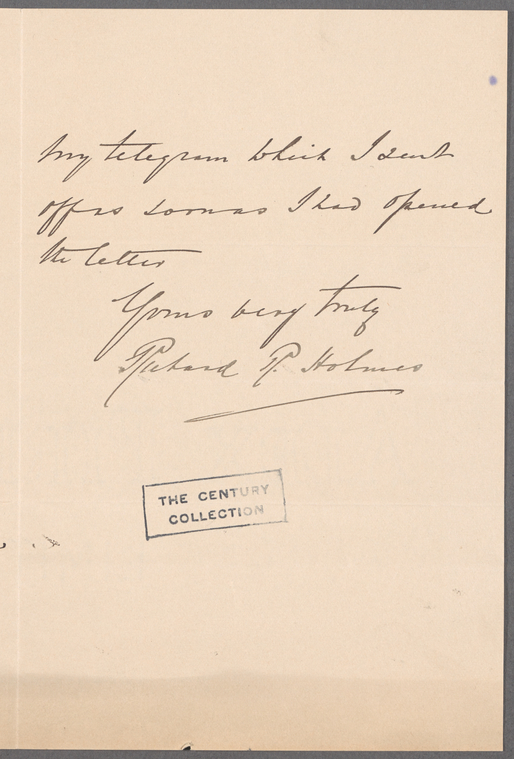 my telegram which I sent
off as soon as I had opened
the letter
Yours very truly
Richard R. Holmes
THE CENTURY
COLLECTION